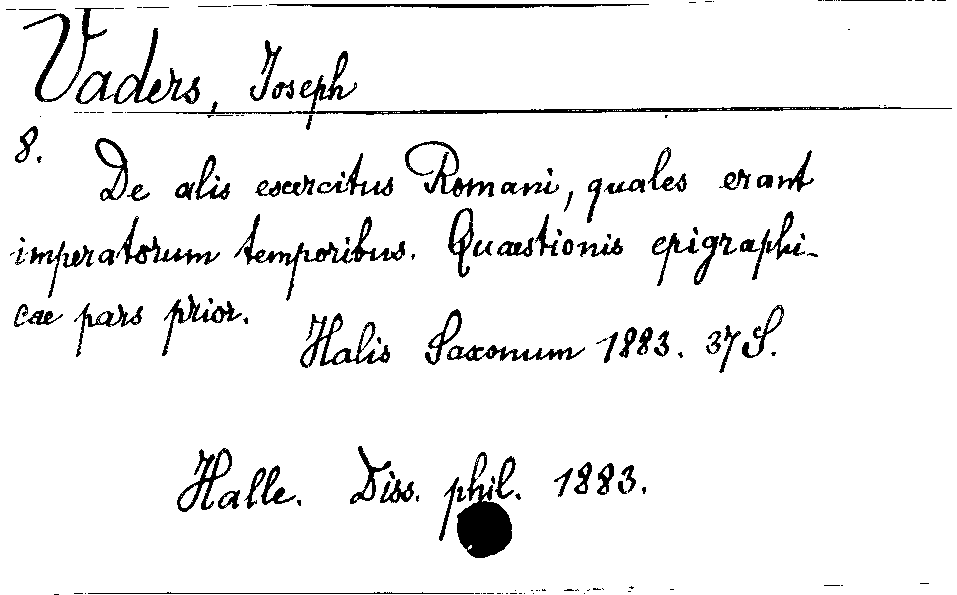 Vaders, Joseph
8. De alis exercitus Romani, quales erant
imperatorum temporibus. Quaestionis epigraphi-
cae pars prior.
Halis Saxonum 1883. 37 S.
Halle. Diss. phil. 1883.